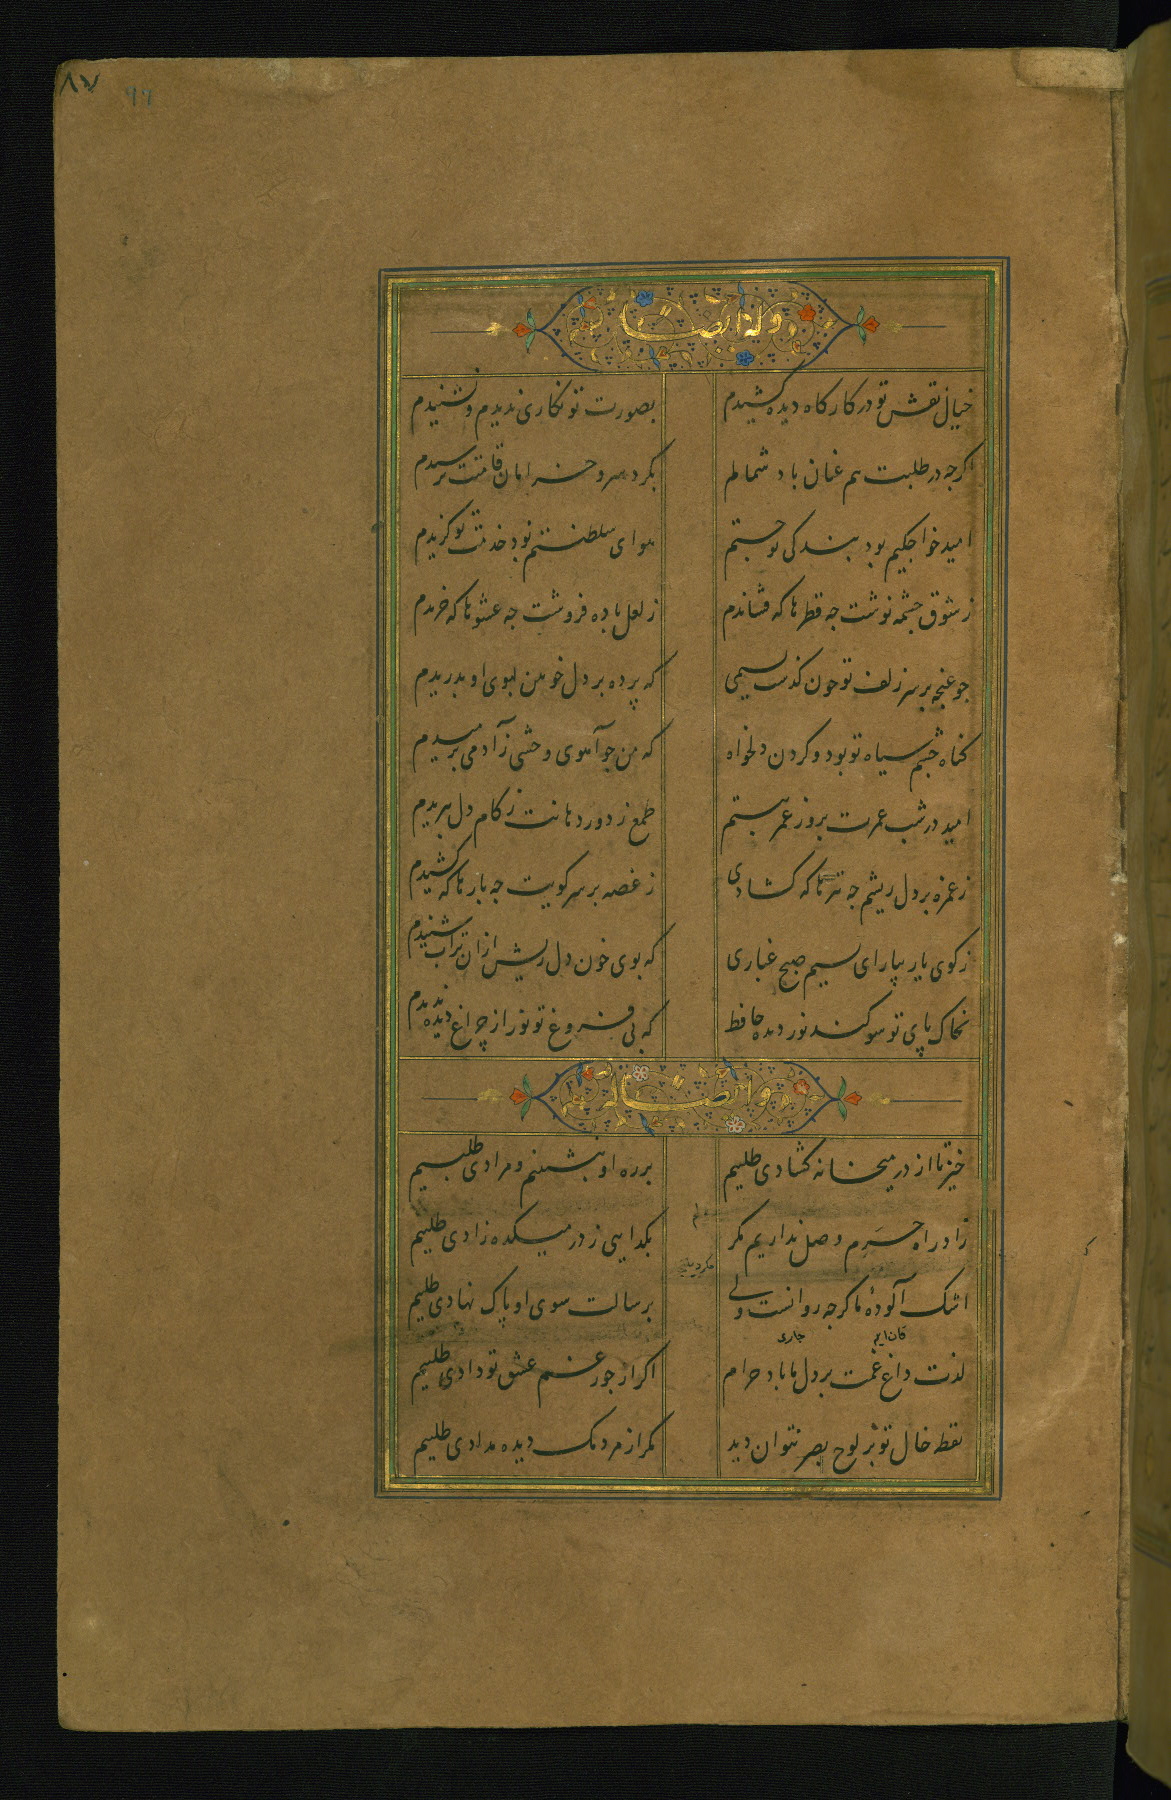 ۸۷
۹۹
وله ایضا
خیال نقش تو در کارکاه دیده کشیدم
بصورت تو نکاری ندیدم و نشنیدم
اکرچه در طلبت هم عنان باد شمالم
بکرد سرو خرامان قامتت نرسیدم
امید خواجکیم بود بندکی تو جستم
هوای سلطنتم بود خدمت تو کزیدم
ز شوق چشمه نوشت چه قطرها که فشاندم
ز لعل باده فروشت چه عشوها که خریدم
چو غنچه بر سر زلف تو چون کذشت نسیمی
که پرده بر دل خونین ببوی او بدریدم
کناه چشم سیاه تو بود و کردن دلخواه
که من چو آهوی وحشی ز آدمی برمیدم
امید در شب عمرت بروز عمر ببستم
طمع ز دور دهانت ز کام دل ببریدم
ز غمزه بر دل ریشم چه تیرها که کشادی
ز غصه بر سر کویت چه بارها که کشیدم
ز کوی یار بیار ای نسیم صبح غباری
که بوی خون دل ریش از ان تراب شنیدم
بخاک پای تو سوکند نور دیده حافظ
که بی فروغ تو نور از چراغ دیده ندیدم
وایضا له
خیز تا از در میخانه کشادی طلبیم
بر ره او بنشینیم و مرادی طلبیم
زاد راه حرم وصل نداریم مکر
بکدایی ز در میکده زادی طلبیم
اشک آلودهٔ ما کرچه روانست ولی
برسالت سوی او پاک نهادی طلبیم
جاری
لذت داغ غمت بر دل ما باد حرام
اکر از جور غم عشق تو دادی طلبیم
نقطه خال تو بر لوح بصر نتوان دید
مکر از مردمک دیده مدادی طلبیم